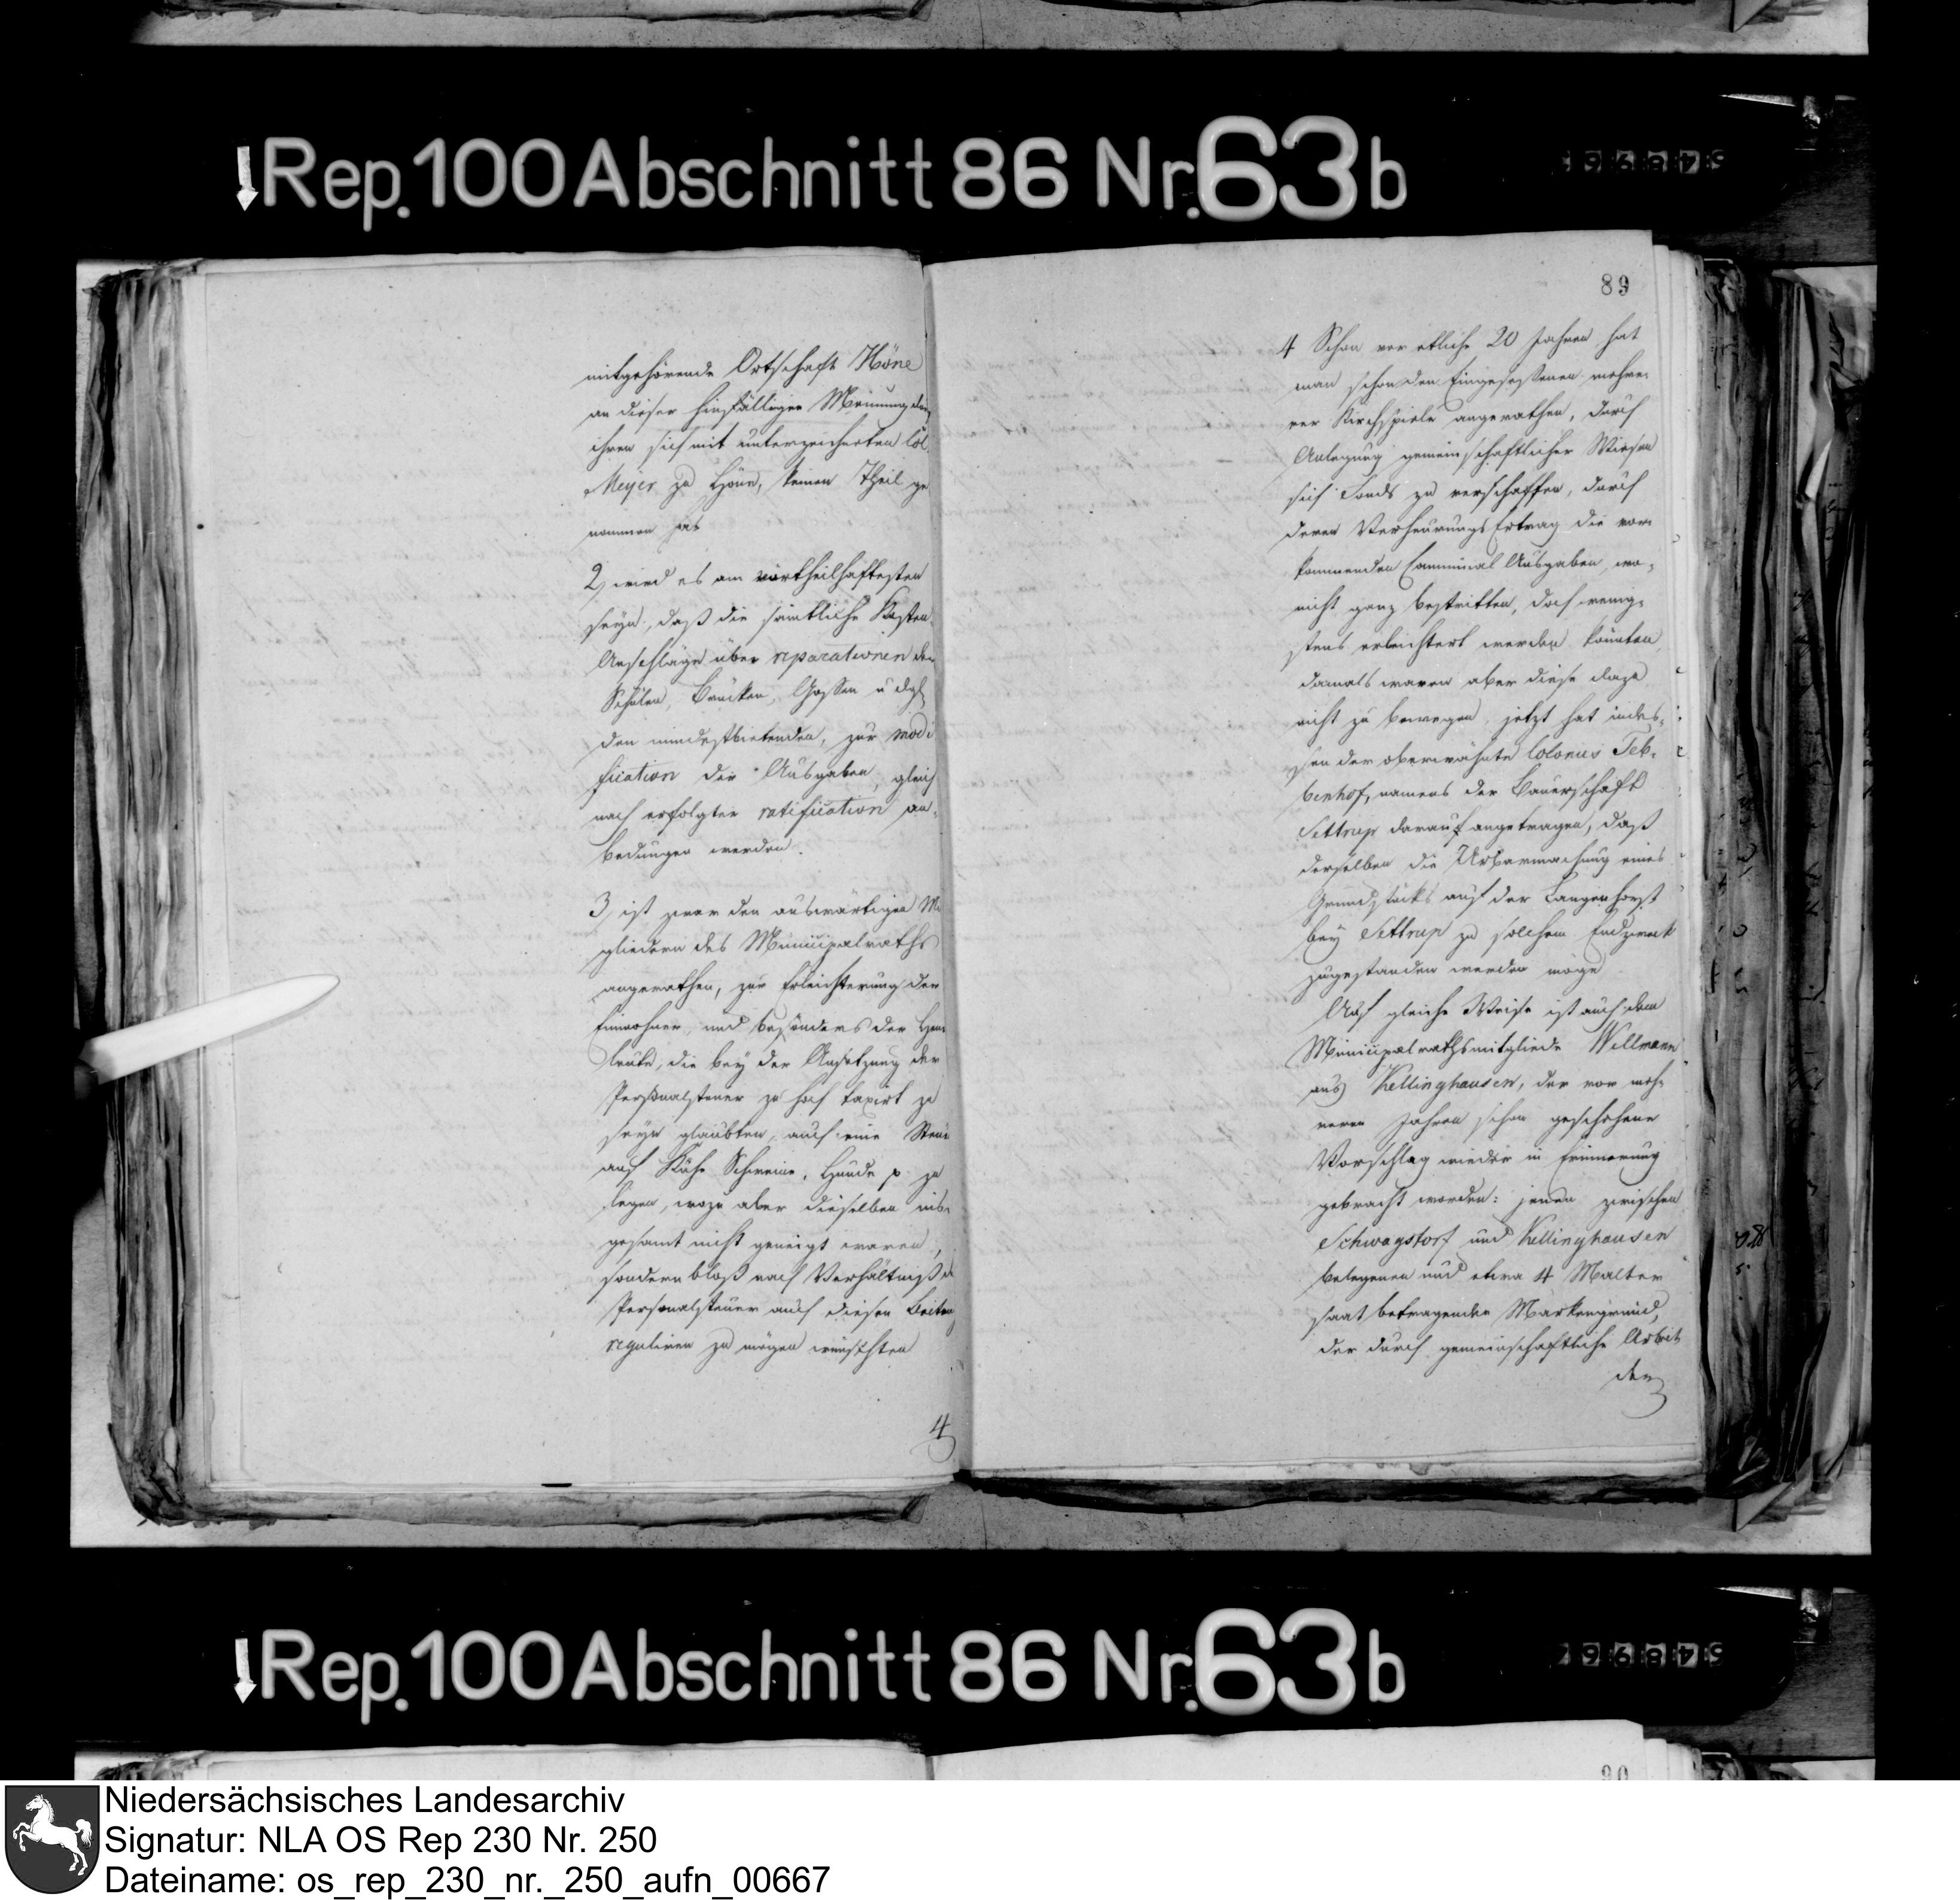 Rep. 100 Abschnitt 86 Nr. 63b
mitgehörende Ortschaft Höne
an dieser hinfälligen Meinung des
ihren sich mit unterzeichneten Col.
Meyer zu Höne, keinen Theil ge
nommen hat
2, wird es am vortheilhaftesten
seyn, daß die sämtliche Kosten
Anschläge über reparationen der
Schulen, Brücken, Gossen u dgl
den mindestbietenden, zur modi
fication der Ausgaben, gleich
nach erfolgter ratification an-
bedungen werden.
3, ist zwar den auswärtigen Mi
gliedern des Municipalraths
angerathen, zur Erleichterung der
Einwohner, und besonders der Heu
leute, die bey der Ansetzung der
Personalsteuer zu hoch taxirt zu
seyn glaubten, auch eine Steue
auf Kühe Schweine, Hunde p. zu
legen, wozu aber dieselben ins-
gesamt nicht geneigt waren,
sondern bloß nach Verhältniß d
Personalsteuer auch diesen Beitrag
reguliren zu mögen wünschten
4
89
4 Schon vor etliche 20 Jahren hat
man schon den Eingesessenen mehre-
rer Kirchspiele angerathen, durch
Anlegung gemeinschaftlicher Wiesen
sich Fonds zu verschaffen, durch
deren Verheurungs Ertrag die vor
kommenden Communal Ausgaben, wo-
nicht ganz bestritten, doch wenig-
stens erleichtert werden könnten,
damals waren aber diese dazu
nicht zu bewegen, jetzt hat indes-
sen der oberwähnte Colonus Teb-
benhof, namens der Bauerschaft
Settrup darauf angetragen, daß
derselben die Urbarmachung eines
Grundstücks auf der Langenhorst
bey Settrup zu solchem Endzweck
zugestanden werden möge
Auf gleiche Weise ist auch dem
Municipalrathsmitgliede Wellmann
aus Kellinghausen, der vor meh-
reren Jahren schon geschehene
Vorschlag wieder in Erinnerung
gebracht worden: jenen zwischen
Schwagstorf und Kellinghausen
belegenen und etwa 4 Malter
saat betragenden Markengrund,
der durch gemeinschaftliche Arbeit
der
Rep. 100 Abschnitt 86 Nr. 63b
90
Niedersächsisches Landesarchiv
Signatur: NLA OS Rep 230 Nr. 250
Dateiname: os_rep_230_nr._250_aufn_00667